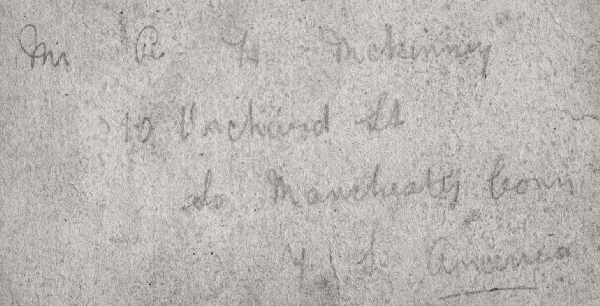 Mr R H McKinney
10 Orchard St
So Manchester Conn
U S America